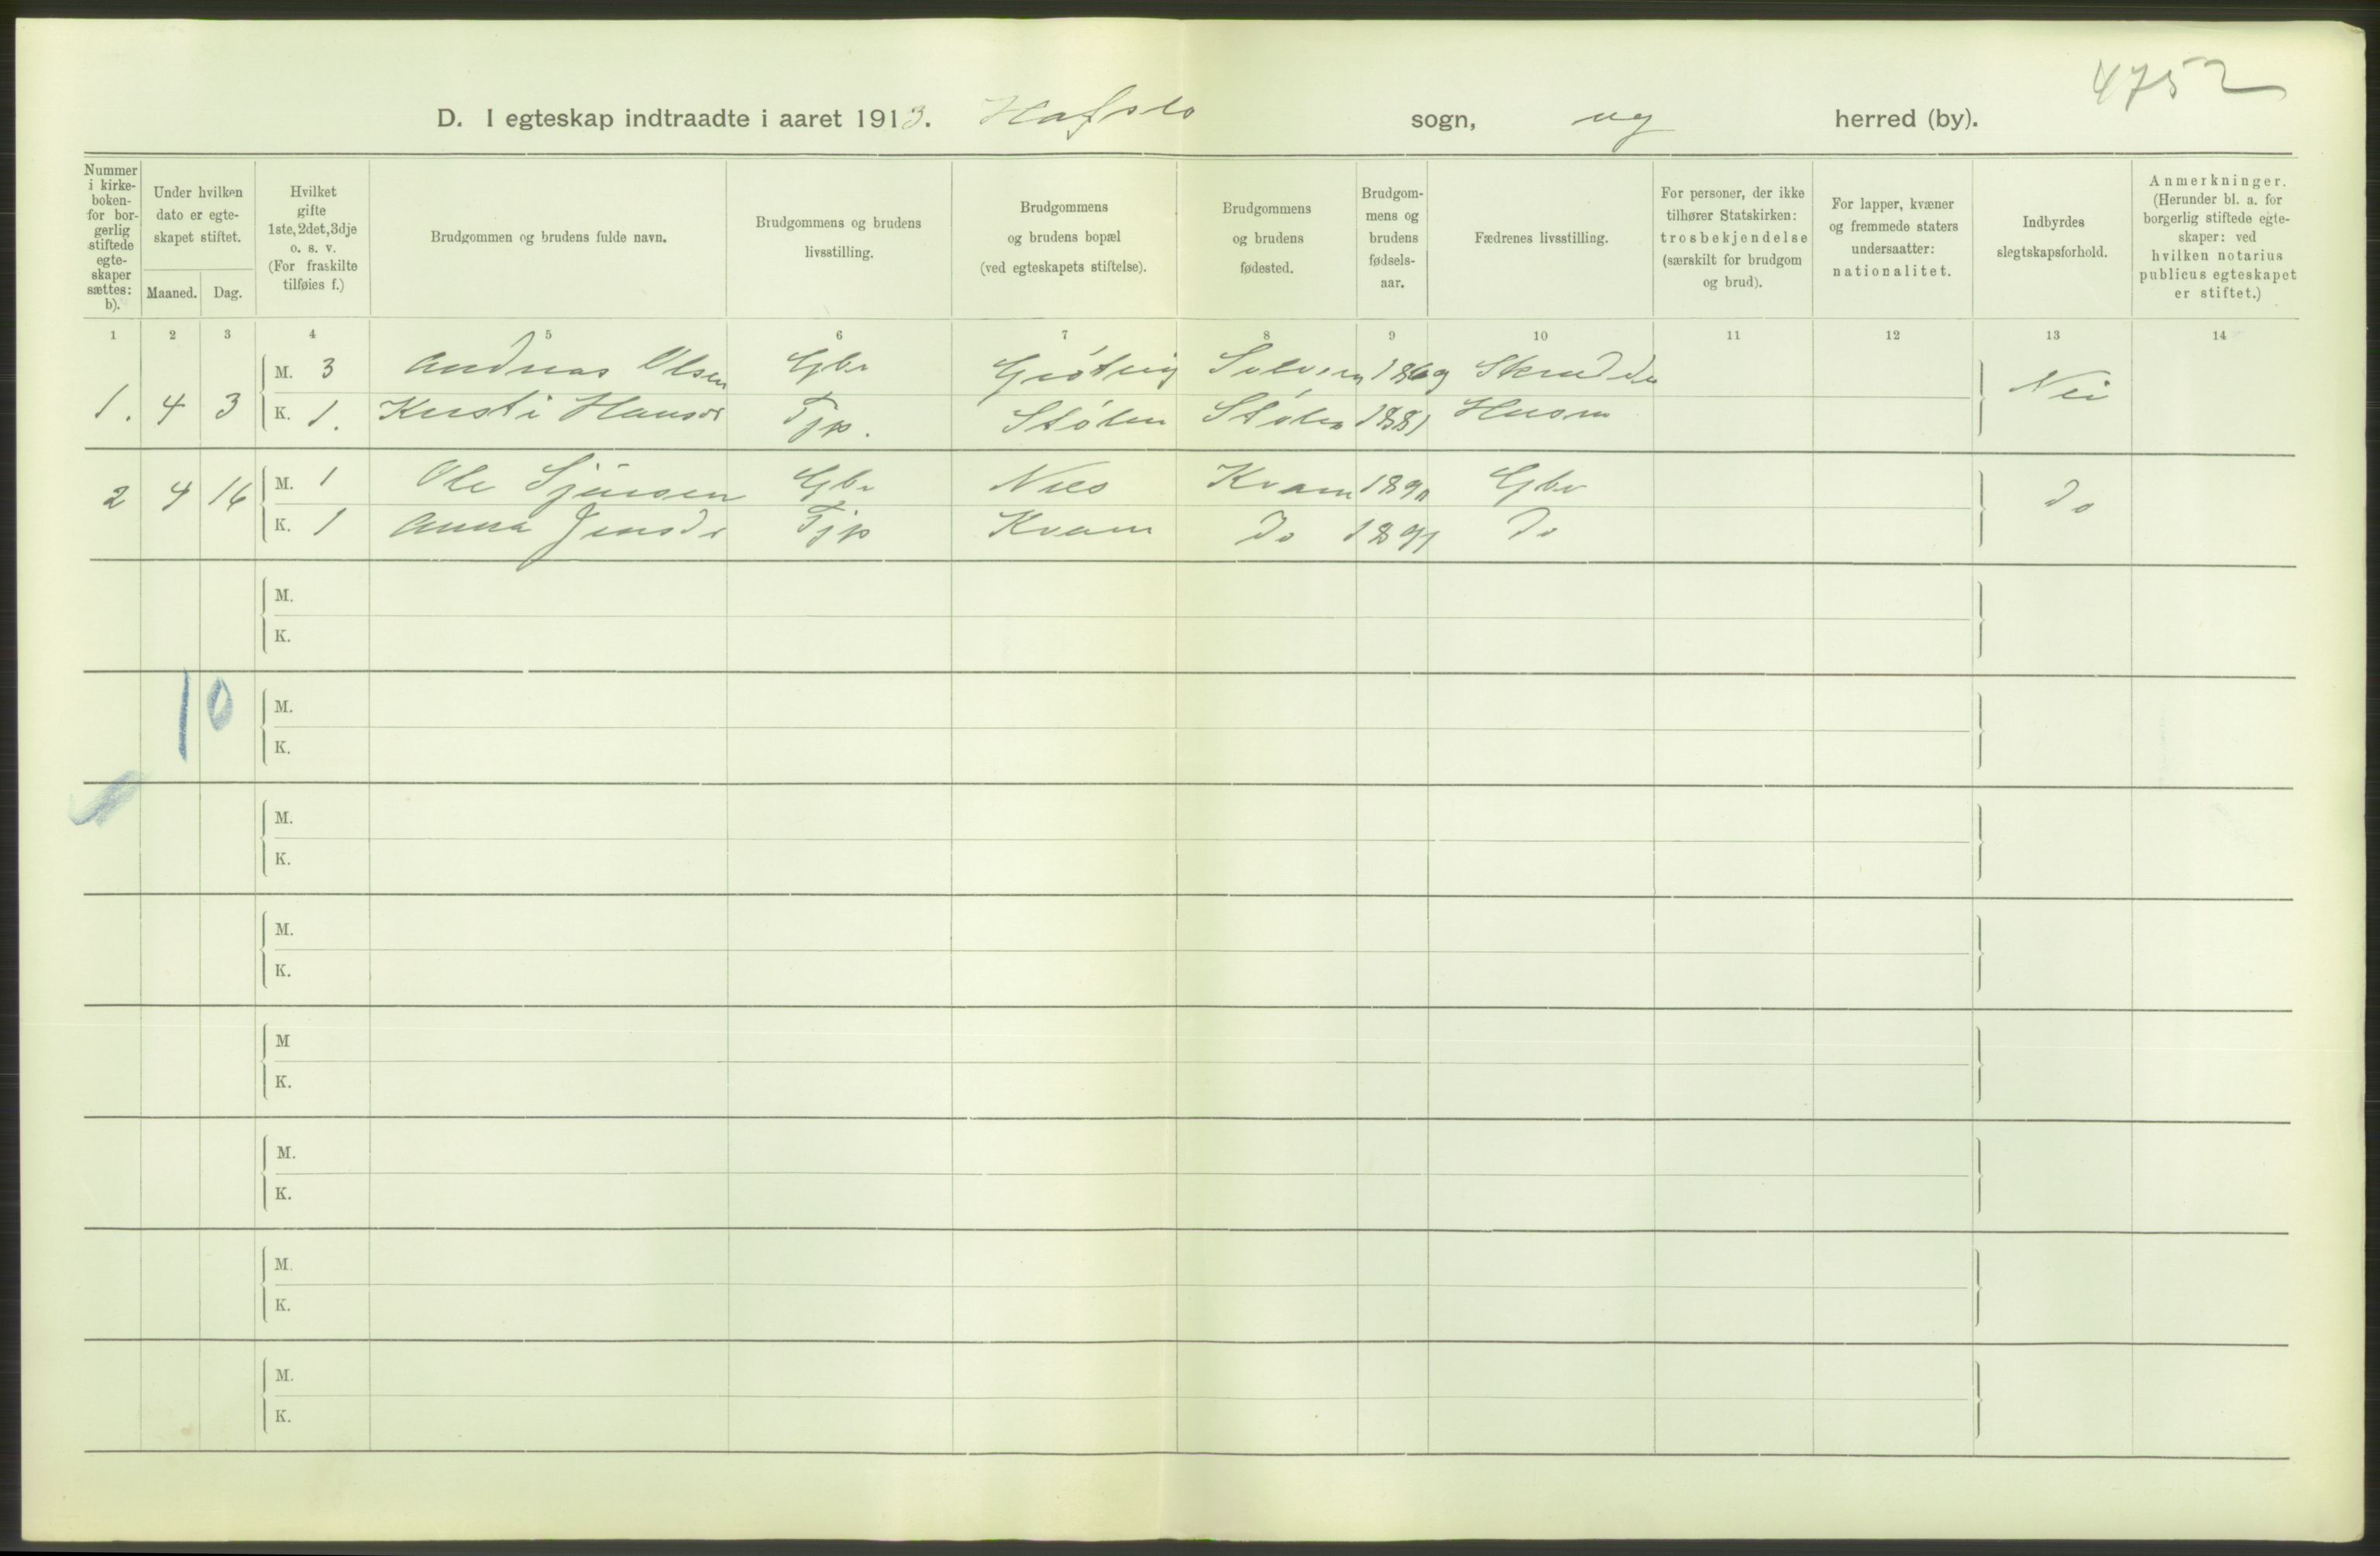 4752
D. I egteskap indtraadte i aaret 1913. Hafslo sogn, og herred (by).
Nummer i kirke-boken- for bor-gerlig stiftede egte-skaper sættes: b).
Under hvilken dato er egte-skapet stiftet.
Maaned. Dag.
Hvilket gifte 1ste, 2det, 3dje o. s. v. (For fraskilte tilføies f.)
Brudgommen og brudens fulde navn.
Brudgommens og brudens livsstilling.
Brudgommens og brudens bopæl (ved egteskapets stiftelse).
Brudgommens og brudens fødested.
Brudgom-mens og brudens fødsels-aar.
Fædrenes livsstilling.
For personer, der ikke tilhører Statskirken: trosbekjendelse (særskilt for brudgom og brud).
For lapper, kvæner og fremmede staters undersaatter: nationalitet.
Indbyrdes slegtskapsforhold.
Anmerkninger. (Herunder bl. a. for borgerlig stiftede egte-skaper: ved hvilken notarius publicus egteskapet er stiftet.)
1 2 3 4 5 6 7 8 9 10 11 12 13 14
M. 3 Andreas Olsen Gbr 1869 Nei
1. 4 3 K. 1. Kristi Hansdr Tjp. Stølen Stølen 1881 Husm
2 4 16 M. 1 Ole Sjursen Gbr Nes Kvam 1890 Gbr do
K. 1 Anna Jensdr Tjp Kvam do 1891 do
M.
K.
10
M.
K.
M.
K.
M.
K.
M
K.
M.
K.
M.
K.
M.
K.